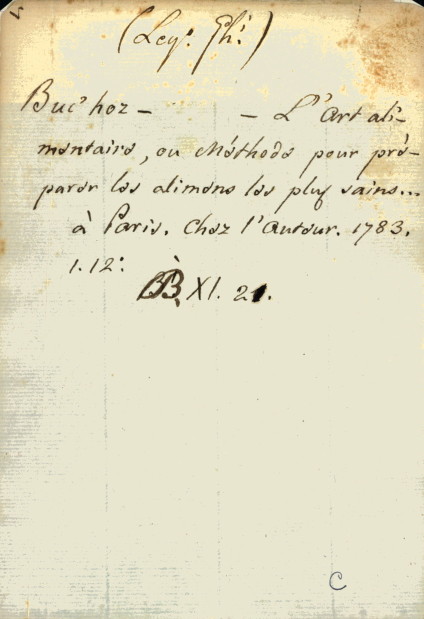 (Leg. Ph.)
Buc'hoz - - L'Art ali-
mentaire, ou Méthode pour pré-
parer les aliments les plus sains...
à Paris. Chez l'Auteur. 1783.
1.12.
BB. XI. 21.
C